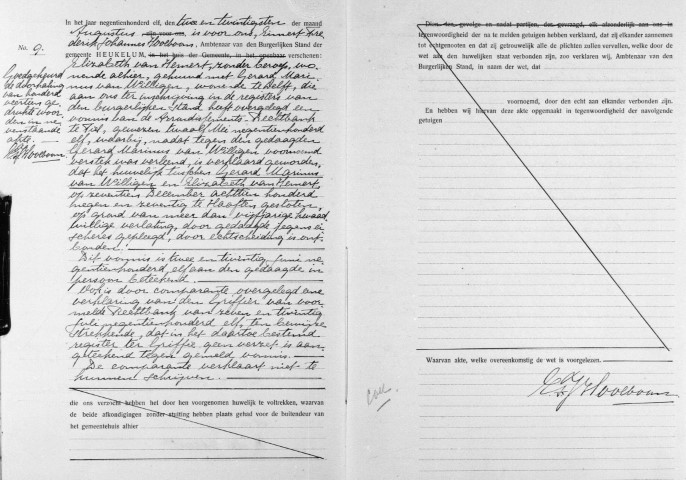 In het jaar negentienhonderd elf, den twee en twintigsten der maand
Augustus is voor ons, Ewnert Fre
derik Johannes Hoolboom, Ambtenaar van den Burgerlijken Stand der
gemeente HEUKELUM, in het huis der Gemeente, in het openbaar verschenen:
No. 9.
Elizabeth van Hemert, zonder beroep, wo
nende alhier, gehuwd met Gerard Mari
nus van Willigen, wonende te Delft, die
aan ons ter inschrijving in de registers van
den burgerlijken Stand heeft overgelegd een
vonnis van de Arrondissements-Rechtbank
te Tiel, gewezen twaalf Mei negentienhonderd
elf, waarbij, nadat tegen den gedaagden
Gerard Marinus van Willigen voornoemd
verstek was verleend, is verklaard geworden,
dat het huwelijk tusschen Gerard Marinus
van Willigen en Elizabeth van Hemert,
op zeventien December achttien honderd
negen en zeventig te Haaften gesloten,
op grond van meer dan vijfjarige kwaad
willige verlating, door gedaagde jegens ei
scheres gepleegd, door echtscheiding is ont
bonden.
Dit vonnis is twee en twintig Juni ne
gentienhonderd elf aan den gedaagde in
persoon beteekend.
Ook is door comparante overgelegd eene
verklaring van den Griffier van voor
melde Rechtbank van zeven en twintig
Juli negentienhonderd elf, ten bewijze
strekkende, dat in het daartoe bestemd
register ter Griffie geen verzet is aan
geteekend tegen gemeld vonnis.
De comparante verklaart niet te
kunnen schrijven.
Goedgekeurd
de doorhaling
van honderd
veertig ge
drukte woor
den in ne
venstaande
akte.
Hoolboom
die ons verzocht hebben het door hen voorgenomen huwelijk te voltrekken, waarvan
de beide afkondigingen zonder stuiting hebben plaats gehad voor de buitendeur van
het gemeentehuis alhier
Dien ten gevolge en nadat partijen, des gevraagd, elk afzonderlijk aan ons in
tegenwoordigheid der na te melden getuigen hebben verklaard, dat zij elkander aannemen
tot echtgenooten en dat zij getrouwelijk alle de plichten zullen vervullen, welke door de
wet aan den huwelijken staat verbonden zijn, zoo verklaren wij, Ambtenaar van den
Burgerlijken Stand, in naam der wet, dat
voornoemd, door den echt aan elkander verbonden zijn.
En hebben wij hiervan deze akte opgemaakt in tegenwoordigheid der navolgende
getuigen
Waarvan akte, welke overeenkomstig de wet is voorgelezen.
Hoolboom